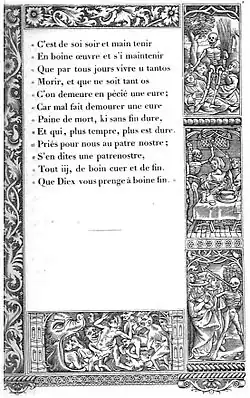 « C'est de soi soir et main tenir
« En boine œuvre et s'i maintenir
« Que par tous jours vivre u tantos
« Morir, et que ne soit tant os
« C'on demeure en pécié une eure ;
« Car mal fait demourer une eure
« Paine de mort, ki sans fin dure,
« Et qui, plus tempre, plus est dure.
« Priés pour nous au patre nostre ;
« S'en dites une patrenostre,
« Tout iij, de boin cuer et de fin.
« Que Diex vous prenge à boine fin. »